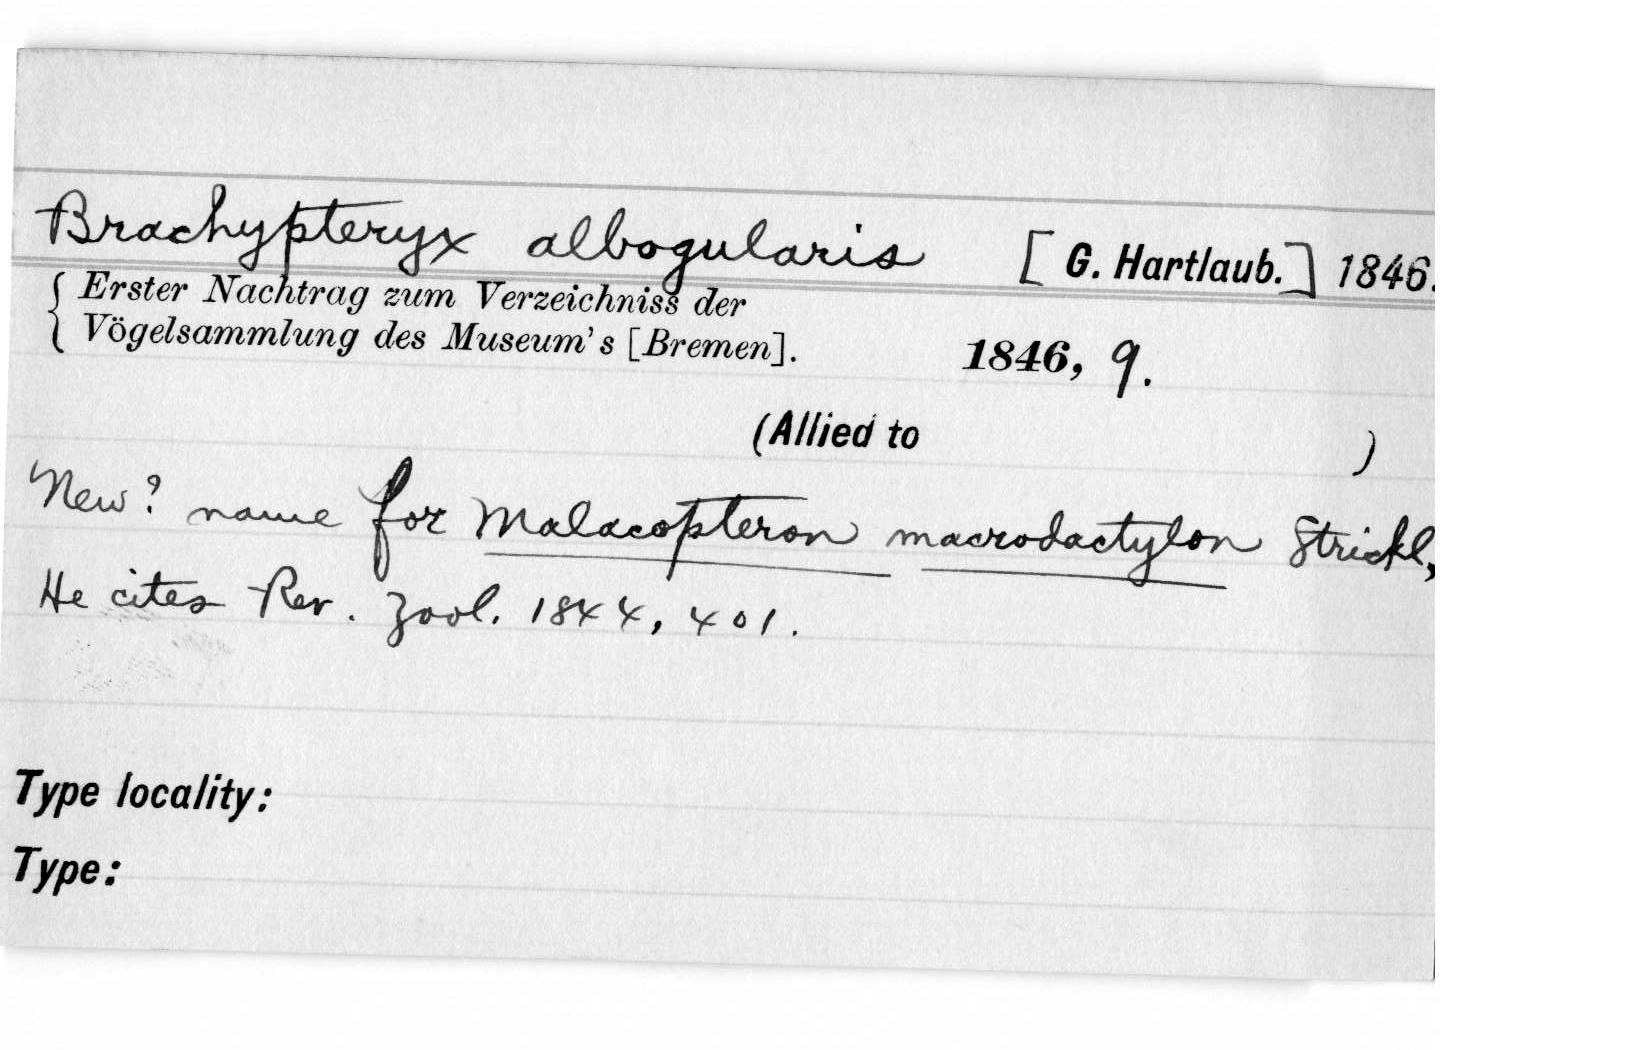 Brachypteryx albogularis [G. Hartlaub.] 1846.
{ Erster Nachtrag zum Verzeichniss der
Vögelsammlung des Museum's [Bremen]. 1846, 9.
(Allied to )
New? name for Malacopteron macrodactylon Strickl,
He cites Rev. Zool. 1844, 401.
Type locality:
Type: